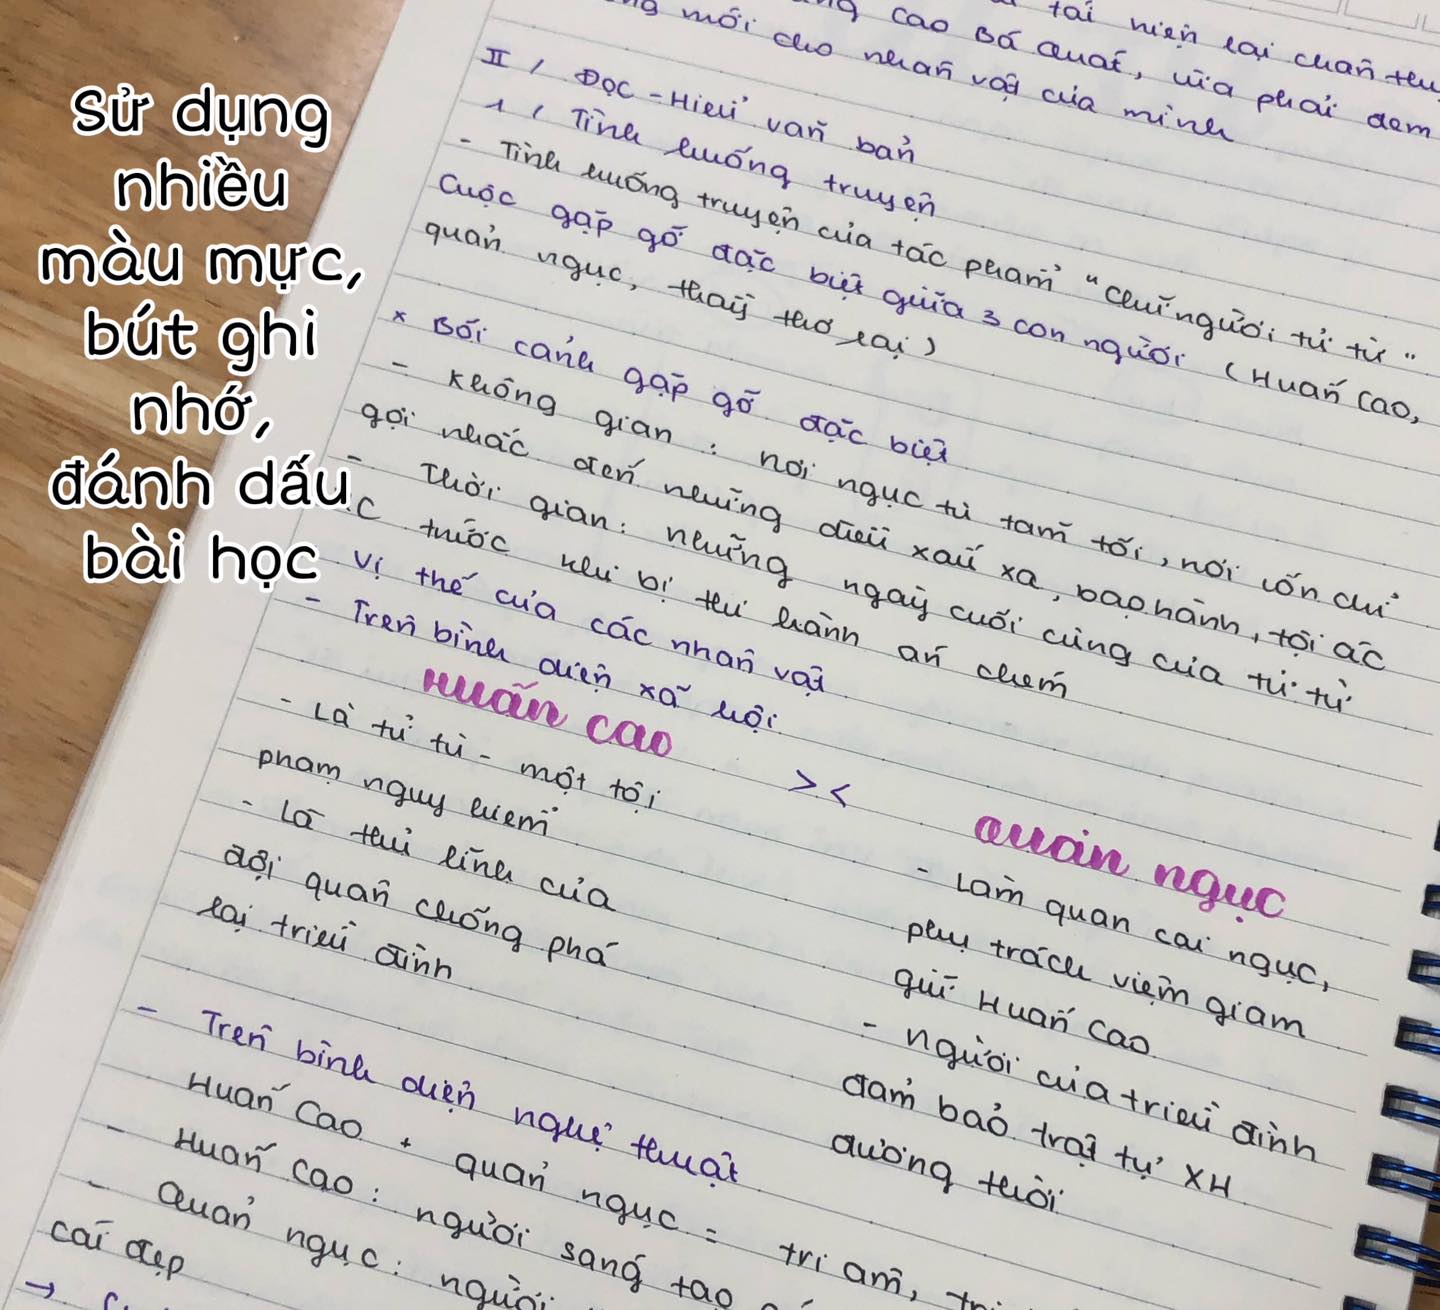 Sử dụng
nhiều
màu mực,
bút ghi
nhớ,
đánh dấu
bài học
tái hiện lại chân
cao Bá Quát, vừa phải đem
mới cho nhân vật của mình
II, Đọc - Hiểu văn bản
1, Tình huống truyện
- Tình huống truyện của tác phẩm "Chữ người tử tù"
Cuộc gặp gỡ đặc biệt giữa 3 con người (Huấn Cao,
quản ngục, thầy thơ lại)
x Bối cảnh gặp gỡ đặc biệt
- Không gian: nơi ngục tù tăm tối, nơi vốn chỉ
gợi nhắc đến những điều xấu xa, bạo hành, tội ác
- Thời gian: những ngày cuối cùng của tử tù
trước khi bị thi hành án chém
Vị thế của các nhân vật
- Trên bình diện xã hội
Huấn Cao >< Quản ngục
- Là tử tù - một tội
phạm nguy hiểm
- Là thủ lĩnh của
đội quân chống phá
lại triều đình
- Làm quan cai ngục,
phụ trách việc giam
giữ Huấn Cao
- Người của triều đình
đảm bảo trật tự XH
đương thời
- Trên bình diện nghệ thuật
Huấn Cao + quản ngục = tri âm,
- Huấn Cao: người sáng tạo
- Quản ngục: người
cái đẹp
→